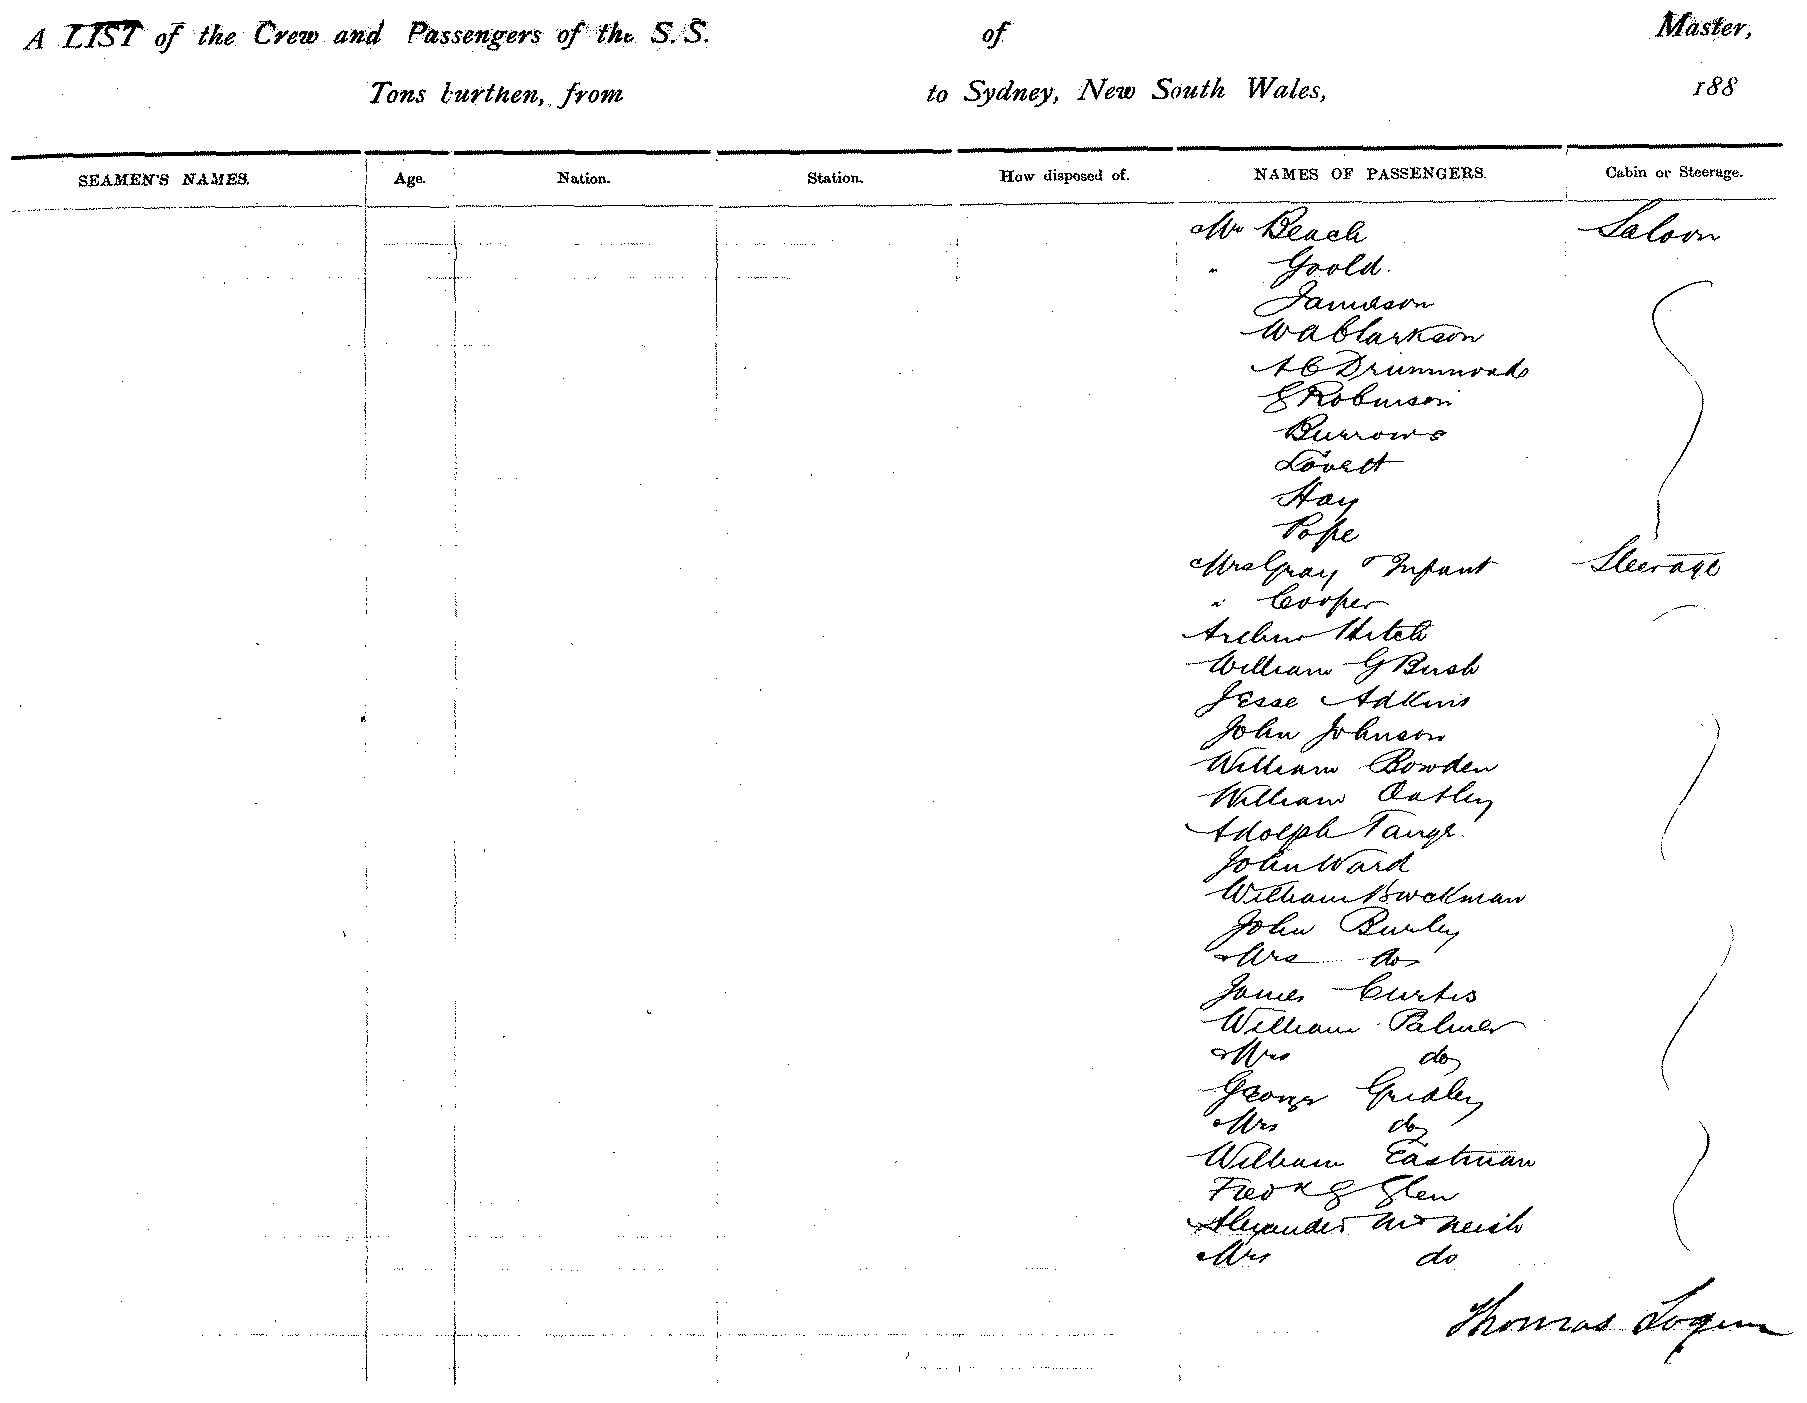 A LIST of the Crew and Passengers of the S.S. of Master,
Tons burthen, from to Sydney, New South Wales, 188
SEAMEN'S NAMES. Age. Nation. Station. How disposed of. NAMES OF PASSENGERS. Cabin or Steerage.
Mr Beach Saloon
" Goold.
Jamieson
W A Clarkson
A C Drummond
E Robinson
Burrows
Lovett
Hay
Pope
Mrs Gray & Infant Steerage
" Cooper
Arthur Hitch
William G Bush
Jesse Adkins
John Johnson
William Bowden
William Oatley
Adolph Tange.
John Ward
William Bockman
John Burley
Mrs do
James Curtis
William Palmer
Mrs do
George Gridley
Mrs do
William Eastman
Fredk G Glen
Alexander McNeish
Mrs do
Thomas Logan